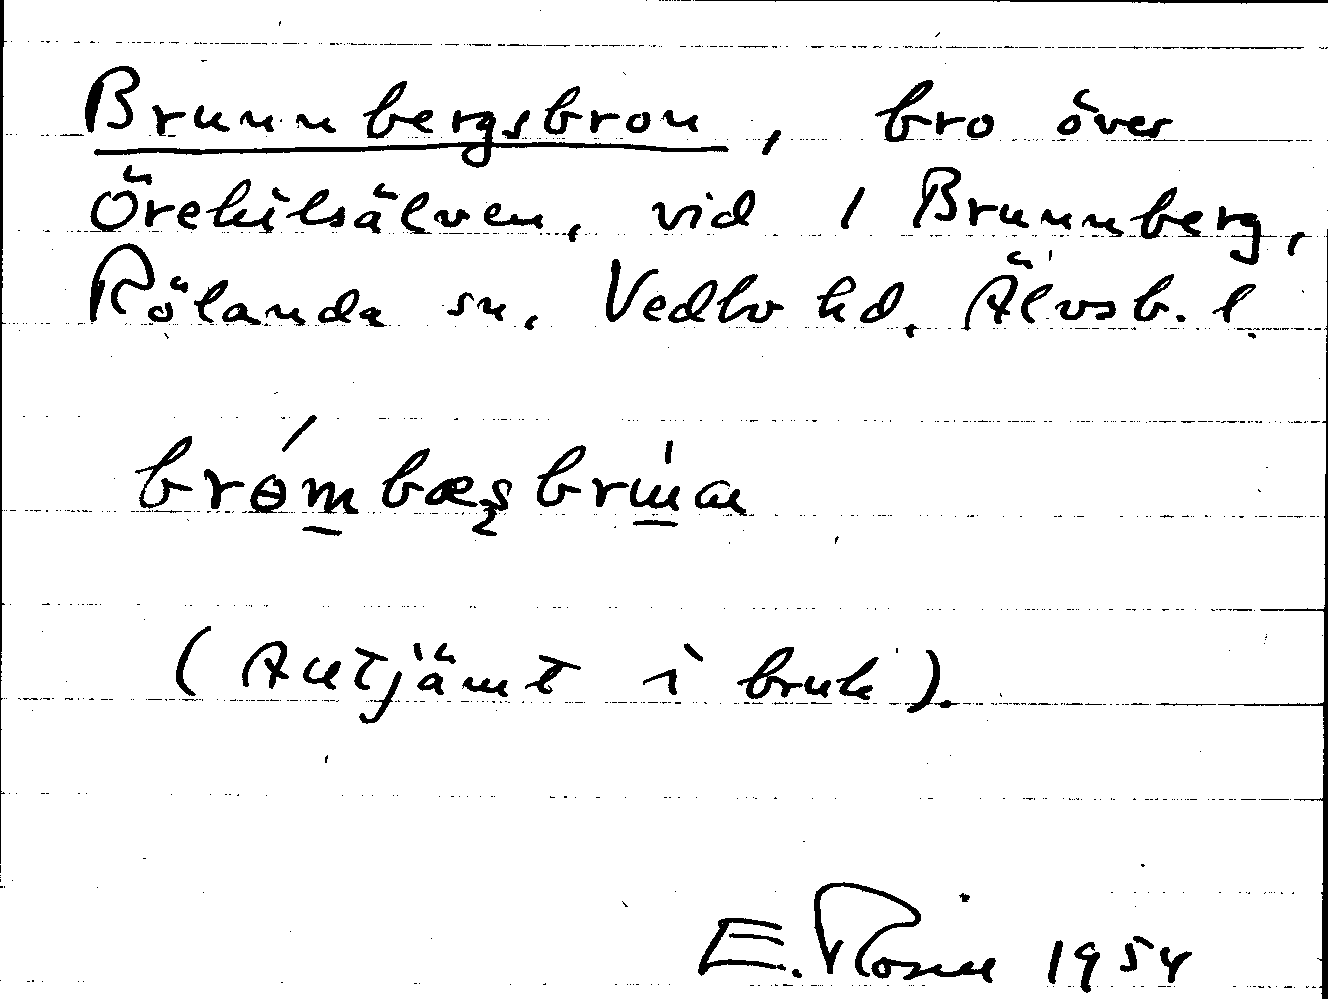 Brunnbergsbron, bro över
Örekilsälven, vid 1 Brunnberg,
Rölanda sn, Vedbo hd, Älvsb. l.
(Alltjämt i bruk).
E. Rosén 1954